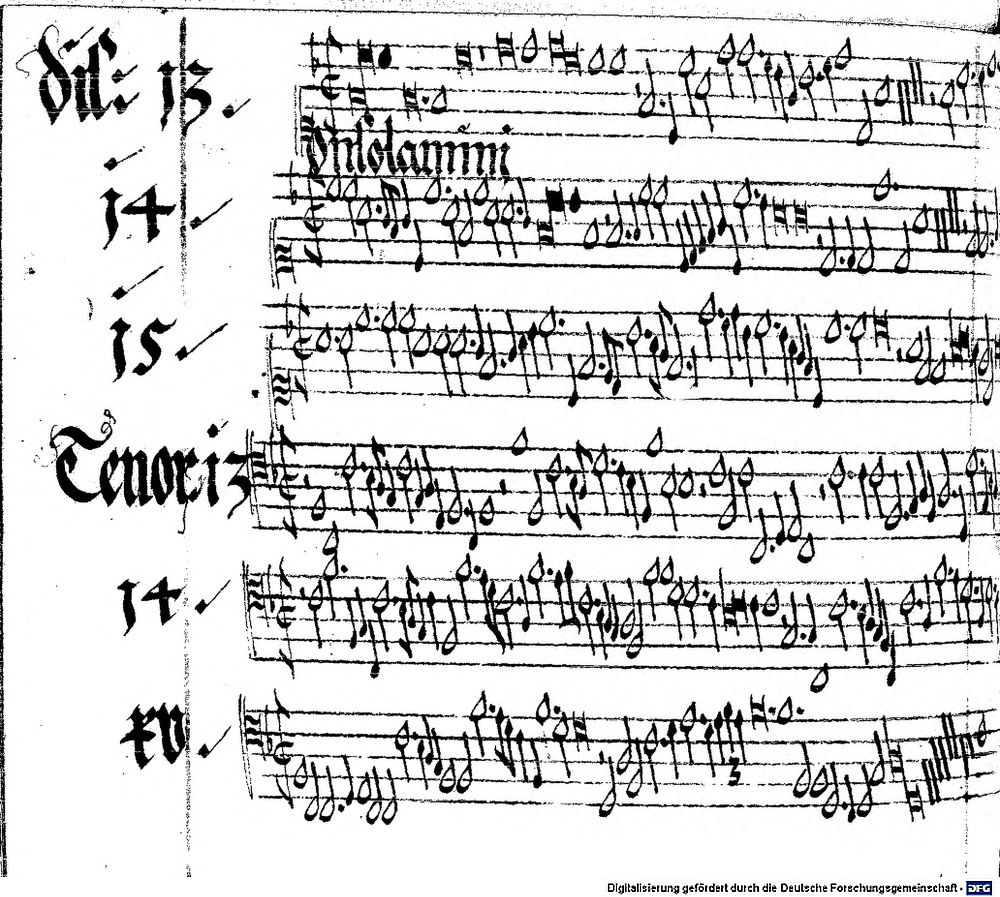 13.
14.
15.
Tenor. 13
14.
xv.
3
Digitalisierung gefördert durch die Deutsche Forschungsgemeinschaft - DFG